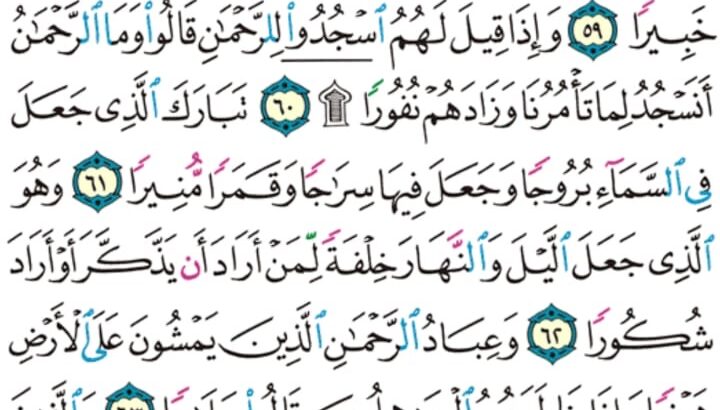 خَبِيرًا ٥٩ وَإِذَا قِيلَ لَهُمُ ٱسْجُدُوا۟ لِلرَّحْمَٰنِ قَالُوا۟ وَمَا ٱلرَّحْمَٰنُ
أَنَسْجُدُ لِمَا تَأْمُرُنَا وَزَادَهُمْ نُفُورًا ۩ ٦٠ تَبَارَكَ ٱلَّذِى جَعَلَ
فِى ٱلسَّمَآءِ بُرُوجًا وَجَعَلَ فِيهَا سِرَٰجًا وَقَمَرًا مُّنِيرًا ٦١ وَهُوَ
ٱلَّذِى جَعَلَ ٱلَّيْلَ وَٱلنَّهَارَ خِلْفَةً لِّمَنْ أَرَادَ أَن يَذَّكَّرَ أَوْ أَرَادَ
شُكُورًا ٦٢ وَعِبَادُ ٱلرَّحْمَٰنِ ٱلَّذِينَ يَمْشُونَ عَلَى ٱلْأَرْضِ